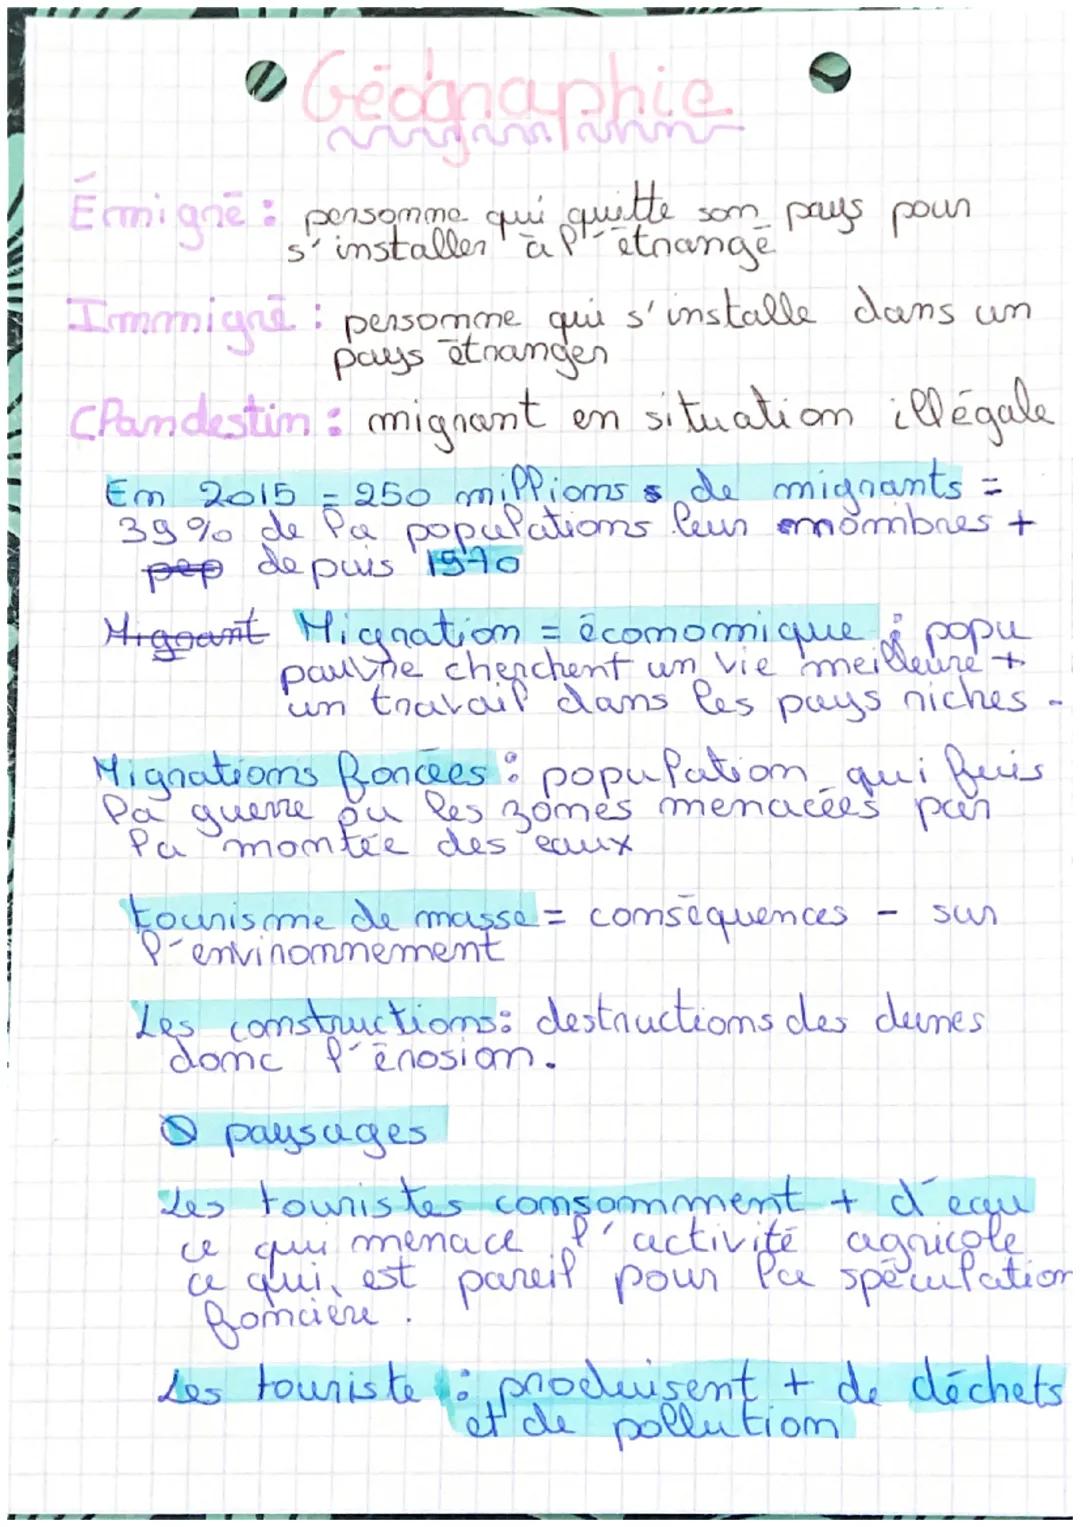 Géographie
Émigré : personne qui quitte son pays pour
s'installer à l'étrangé
Immigré : personne qui s'installe dans un
pays étranger
Clandestin : migrant en situation illégale
En 2015 = 250 millions de migrants =
39% de la populations leur nombres +
pep depuis 1970
Migrant Migration = économique : popu
pauvre cherchent un vie meilleure +
un travail dans les pays riches.
Migrations forcées : population qui fuis
la guerre ou les zones menacées par
la montée des eaux
tourisme de masse = conséquences - sur
l'environnement
Les constructions : destructions des dunes
donc l'érosion.
paysages
Les touristes consomment + d'eau
ce qui menace l'activité agricole
ce qui est pareil pour la spéculation
foncière.
Les touriste : produisent + de déchets
et de pollution